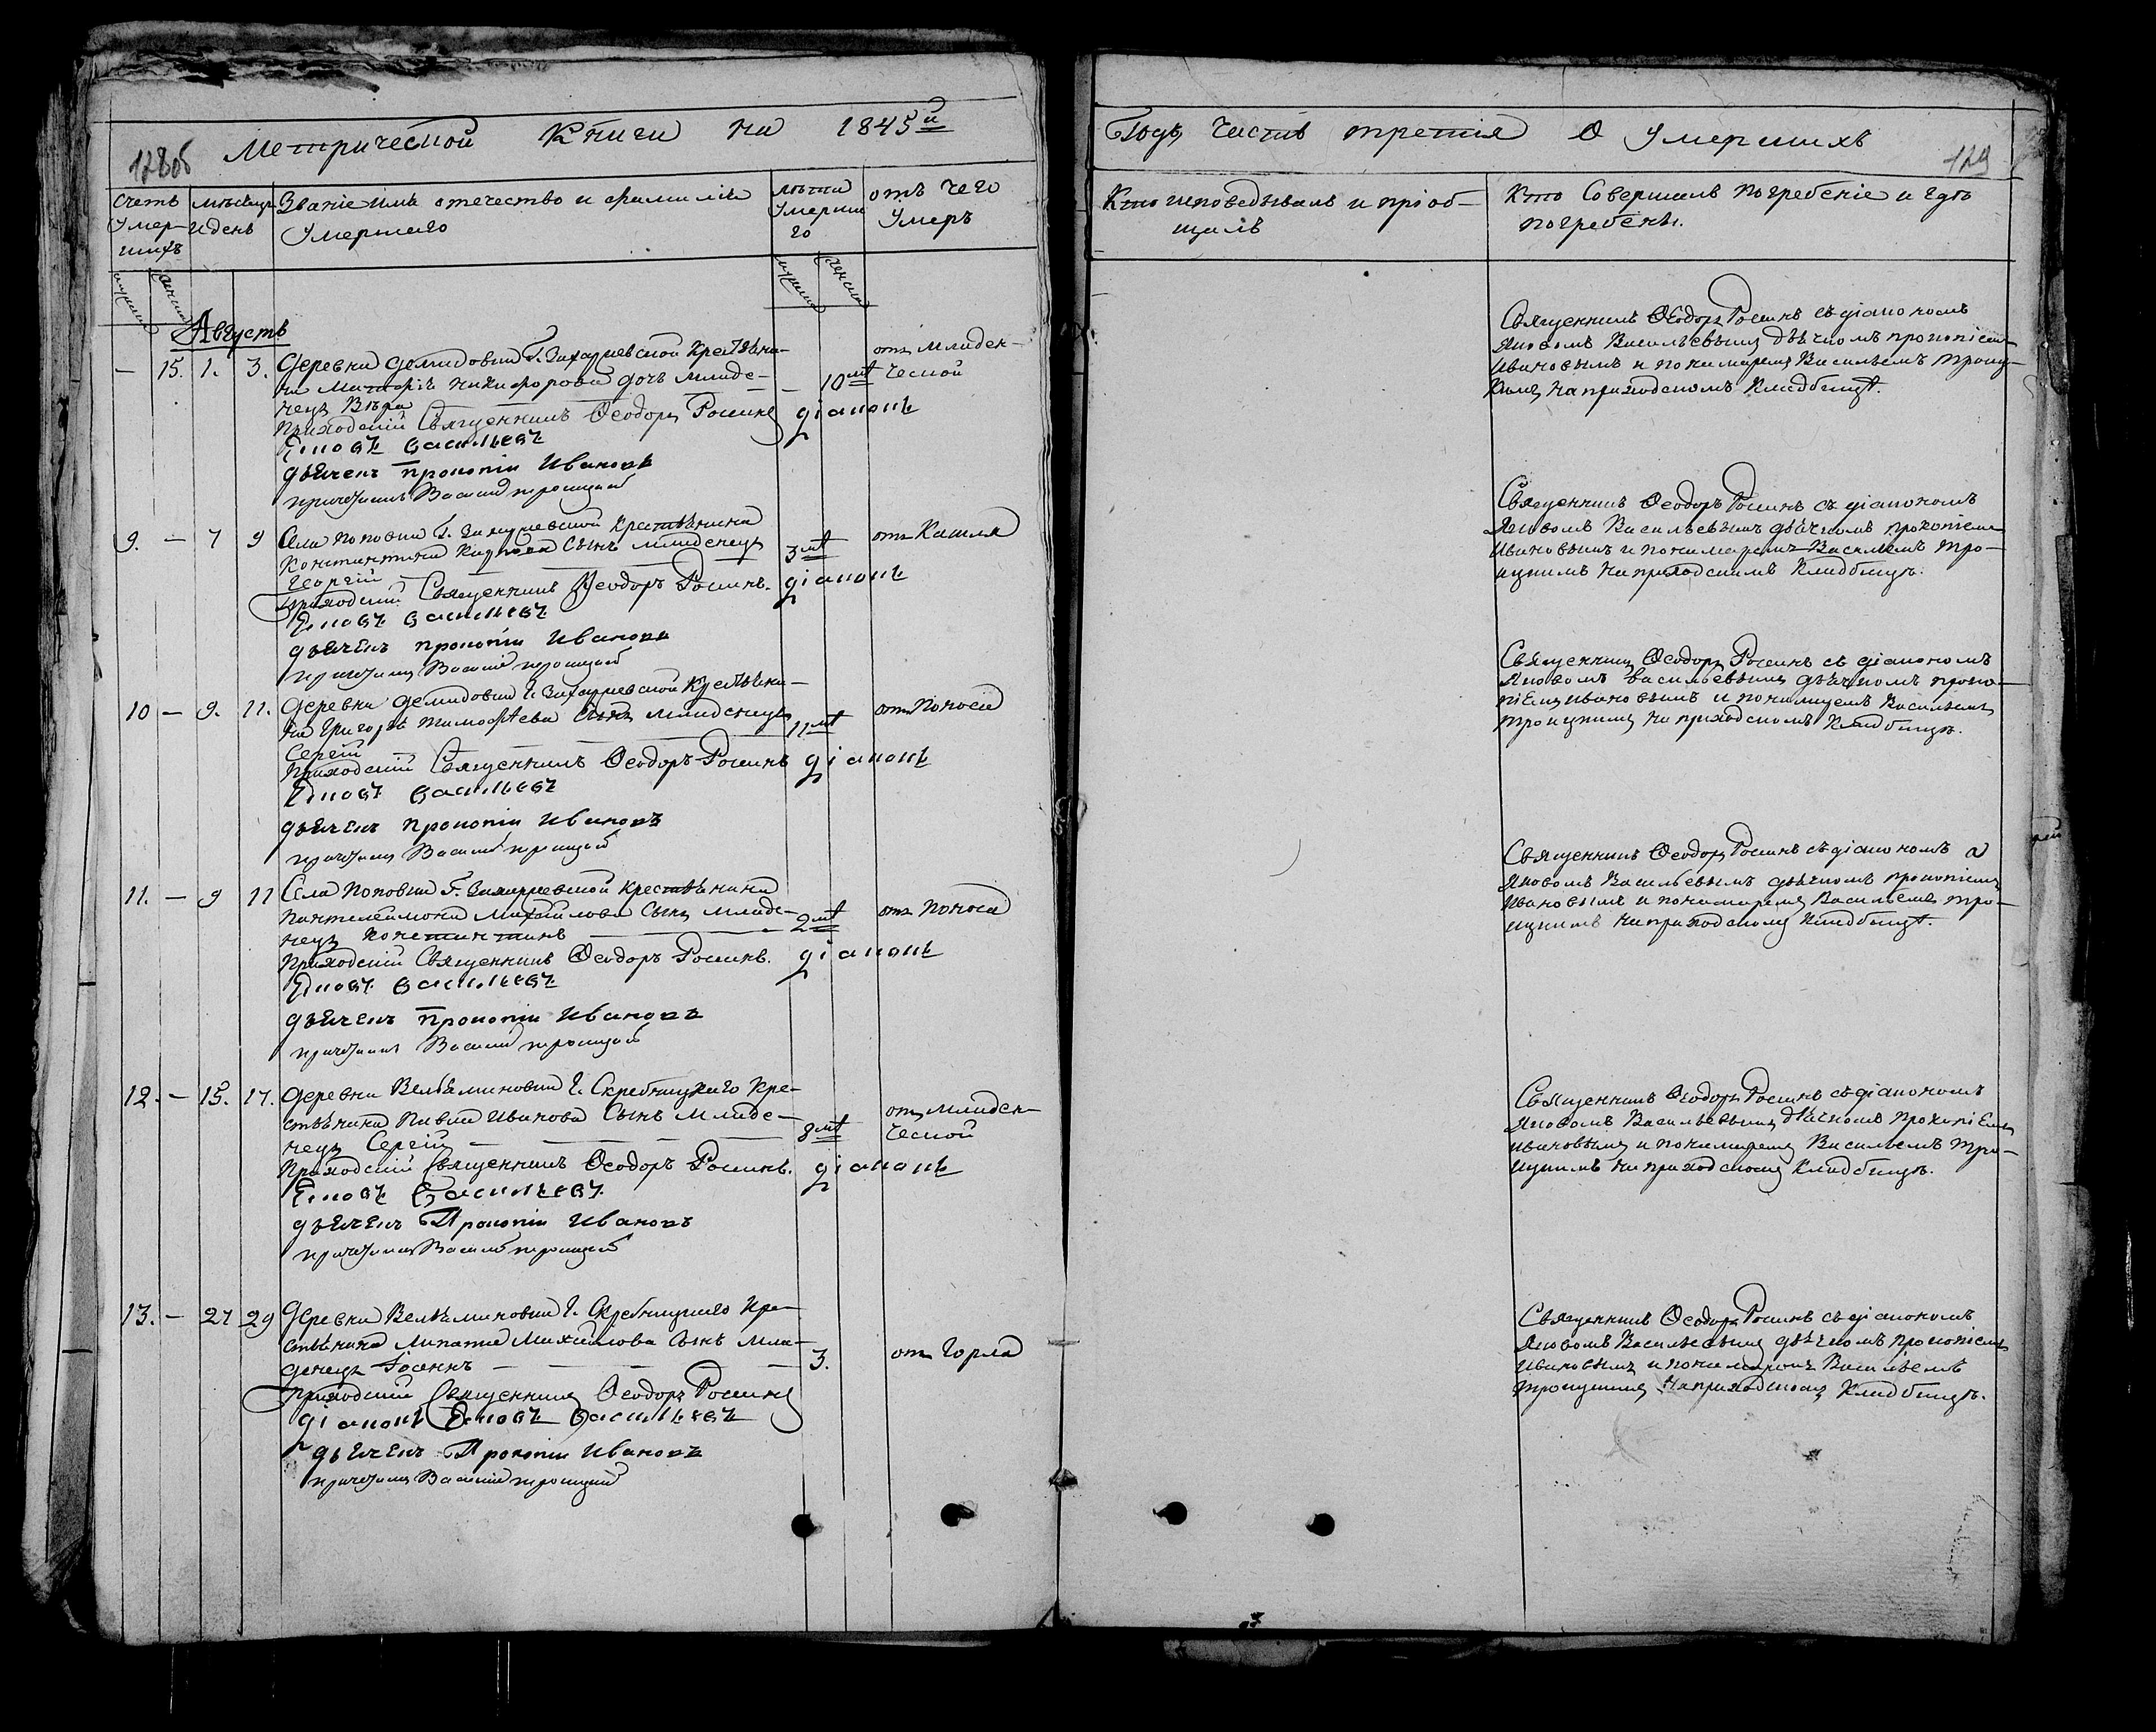 128об
Метрической Книги на 1845й
Счетъ Умер-шихъ
мѣсяцъ и день
Званіе имя отечество и фамилія Умершаго
лѣта Умерша го
отъ чего Умеръ
Августъ
— 15. 1. 3. Деревни Демидовки Г. Захаржевской Крестьяни-
на Матфія Никифорова дочь младе-
нецъ Вѣра — 10 мц
отъ младен-
ческой
Приходскій Священникъ Ѳеодоръ Рошинъ діаконъ
Яковъ Васильевъ
дьяченъ Прокопій Ивановъ
причетникъ Василій Троицкій
9. — 7 9 Села Поповки Г. Захаржевской Крестьянина
Константина Сынъ младенецъ
Георгій 3 мц
отъ Кашля
Приходскій Священникъ Ѳеодоръ Рошинъ. діаконъ
Яковъ Васильевъ
дьяченъ Прокопій Ивановъ
причетникъ Василій Троицкій
10 — 9. 11. Деревни Демидовки Г. Захаржевской Крестьяни-
на Григорія Тимофѣева Сынъ младенецъ
Сергій 11 мц
отъ Поноса
Приходскій Священникъ Ѳеодоръ Рошинъ діаконъ
Яковъ Васильевъ
дьяченъ Прокопій Ивановъ
причетникъ Василій Троицкій
11. — 9 11 Села Поповки Г. Захаржевской Крестьянина
Пантелеймона Михайлова Сынъ младе-
нецъ Константинъ 2 мц
отъ Поноса
Приходскій Священникъ Ѳеодоръ Рошинъ. діаконъ
Яковъ Васильевъ
дьяченъ Прокопій Ивановъ
причетникъ Василій Троицкій
12. — 15. 17. Деревни Вельяминовки Г. Скребницкаго Кре-
стьянина Павла Иванова Сынъ младе-
нецъ Сергій — 8 мц
отъ младен-
ческой
Приходскій Священникъ Ѳеодоръ Рошинъ. діаконъ
Яковъ Васильевъ
дьяченъ Прокопій Ивановъ
причетникъ Василій Троицкій
13. — 27 29 Деревни Вельяминовки Г. Скребницкаго Кре-
стьянина Липата Михайлова Сынъ мла-
денецъ Іоаннъ — 3.
отъ Горла
Приходскій Священникъ Ѳеодоръ Рошинъ
діаконъ Яковъ Васильевъ
дьяченъ Прокопій Ивановъ
причетникъ Василій Троицкій
Годъ Часть третія О Умершихъ
129
Кто исповедывалъ и пріоб-
щалъ
Кто Совершалъ Погребеніе и гдѣ
погребены.
Священникъ Ѳеодоръ Рошинъ съ діакономъ
Яковомъ Васильевымъ дьячкомъ прокопіемъ
Ивановымъ и пономаремъ Васильемъ Троиц-
кимъ на приходскомъ Кладбищѣ.
Священникъ Ѳеодоръ Рошинъ съ діакономъ
Яковомъ Васильевымъ дьячкомъ прокопіемъ
Ивановымъ и пономаремъ Васильемъ Тро-
ицкимъ на приходскимъ Кладбищѣ.
Священникъ Ѳеодоръ Рошинъ съ діакономъ
Яковомъ Васильевымъ дьячкомъ проко-
піемъ Ивановымъ и пономаремъ Васильемъ
Троицкимъ на приходскомъ Кладбищѣ.
Священникъ Ѳеодоръ Рошинъ съ діакономъ
Яковомъ Васильевымъ дьячкомъ прокопіемъ
Ивановымъ и пономаремъ Васильемъ Тро-
ицкимъ на приходскомъ Кладбищѣ.
Священникъ Ѳеодоръ Рошинъ съ діакономъ
Яковомъ Васильевымъ дьячкомъ Прокопіемъ
Ивановымъ и пономаремъ Васильемъ Тро-
ицкимъ на приходскомъ Кладбищѣ.
Священникъ Ѳеодоръ Рошинъ съ діакономъ
Яковомъ Васильевымъ дьячкомъ прокопіемъ
Ивановымъ и пономаремъ Васильемъ
Троицкимъ на приходскомъ Кладбищѣ.